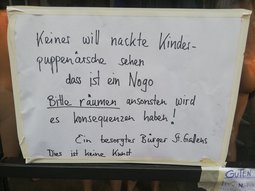 Keiner will nackte Kinder-
puppenärsche sehen
das ist ein Nogo
Bitte räumen ansonsten wird
es konsequenzen haben!
Ein besorgter Bürger St. Gallens
Dies ist keine Kunst
GUTEN